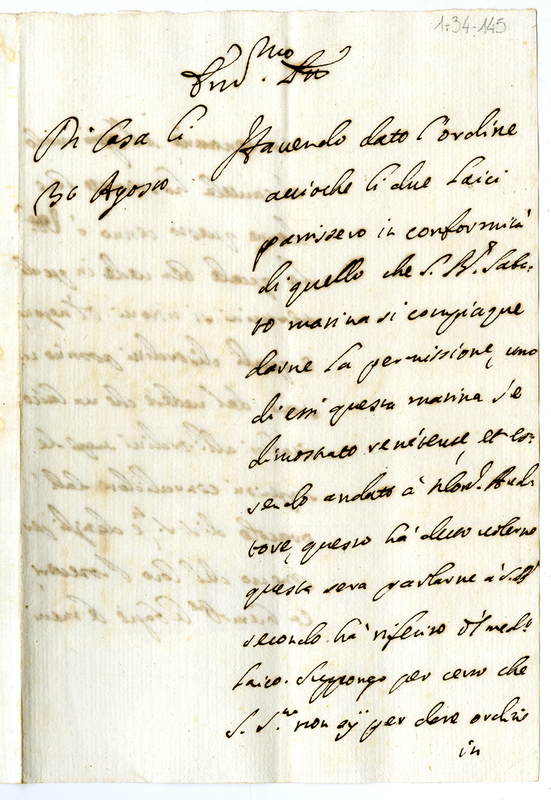 1734-145
Di Casa li
30 Agosto
Havendo dato l'ordine
accioche li due Laici
partissero in conformità
di quello che S. B.ne Saba-
to matina si compiaque
darne la permissione, uno
di essi questa matina s'è
dimostrato renitente, et es-
sendo andato à Mons.r Audi-
tore, questo hà detto volerne
questa sera parlarne à S. B.ne
secondo hà riferito d.o med.o
Laico. Suppongo per certo che
S. S.tà non sij per dare ordini
in